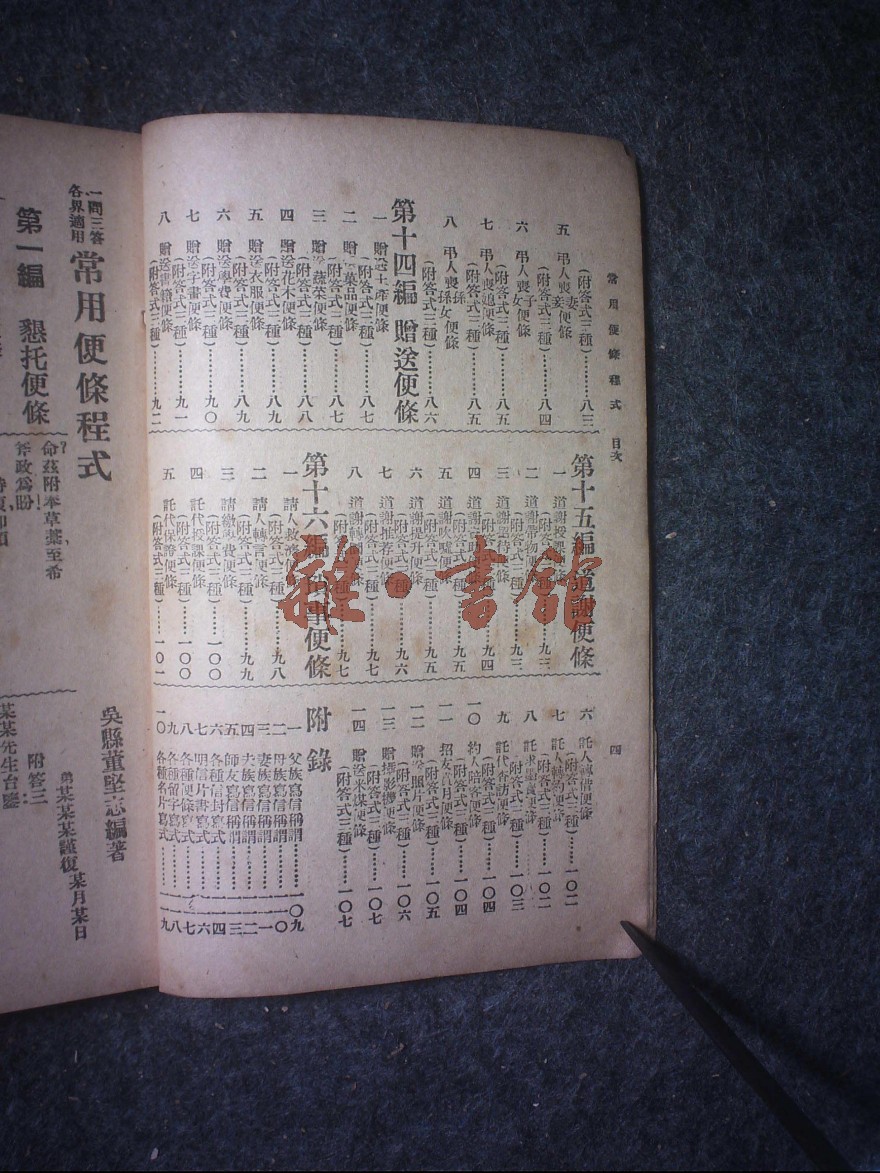 常用便條程式 目次
四
(附答式三種)………八三
五 弔人喪妻妾便條
(附答式三種)………八四
六 弔人喪子女便條
(附答式三種)………八五
七 弔人喪媳便條
(附答式三種)………八五
八 弔人喪孫孫女便條
(附答式三種)………八六
第十四編 贈送便條
一 贈送土產便條
(附答式三種)………八七
二 贈 菓品便條
(附答式三種)………八七
三 贈送蔬菜便條
(附答式三種)………八八
四 贈送花木便條
(附答式三種)………八九
五 贈送衣服便條
(附答式三種)………八九
六 贈送學費便條
(附答式三種)………九〇
七 贈送字書便條
(附答式三種)………九一
八 贈送書籍便條
(附答式三種)………九二
第十五編 道謝便條
一 道謝授課便條
(附答式三種)………九三
二 道謝 物便條
(附答式三種)………九三
三 道謝
(附答式三種)………九四
四 道謝
(附答式三種)………九五
五 道謝吹噓便條
(附答式三種)………九五
六 道謝提升便條
(附答式三種)………九六
七 道謝推荐便條
(附答式三種)………九七
八 道謝轉 便條
(附答式三種)………九七
第十六編 事便條
一 請人救濟便條
(附答式三種)………九八
二 請人轉言便條
(附答式三種)………九九
三 請繳學費便條
(附答式三種)………一〇〇
四 託代授課便條
(附答式三種)………一〇〇
五 託代保證便條
(附答式三種)………一〇一
六 託人轉借便條
(附答式三種)………一〇二
七 託人轉約便條
(附答式三種)………一〇二
八 託求墨寶便條
(附答式三種)………一〇三
九 託代查訪便條
(附答式三種)………一〇四
一〇 約人陪客便條
(附答式三種)………一〇四
一一 招友賞月便條
(附答式三種)………一〇五
一二 贈送照片便條
(附答式三種)………一〇六
一三 贈攝影機便條
(附答式三種)………一〇七
一四 贈送米煤便條
(附答式三種)………一〇七
附錄
一 父族寫信稱謂………一〇九
二 母族寫信稱謂………一一〇
三 妻族寫信稱謂………一一一
四 夫族寫信稱謂………一一二
五 師友寫信稱謂………一一三
六 各種信封寫式………一一四
七 明信片書寫式………一一六
八 各種便條寫式………一一七
九 各種留字寫式………一一八
一〇 各種名片寫式………一一九
雜·書館
一問三答
各界適用
常用便條程式
吳縣董堅志編著
第一編 懇托便條
命茲附奉草藁至希
斧政為盼
弟某某某謹復某月某日
附答三
某某先生台鑒